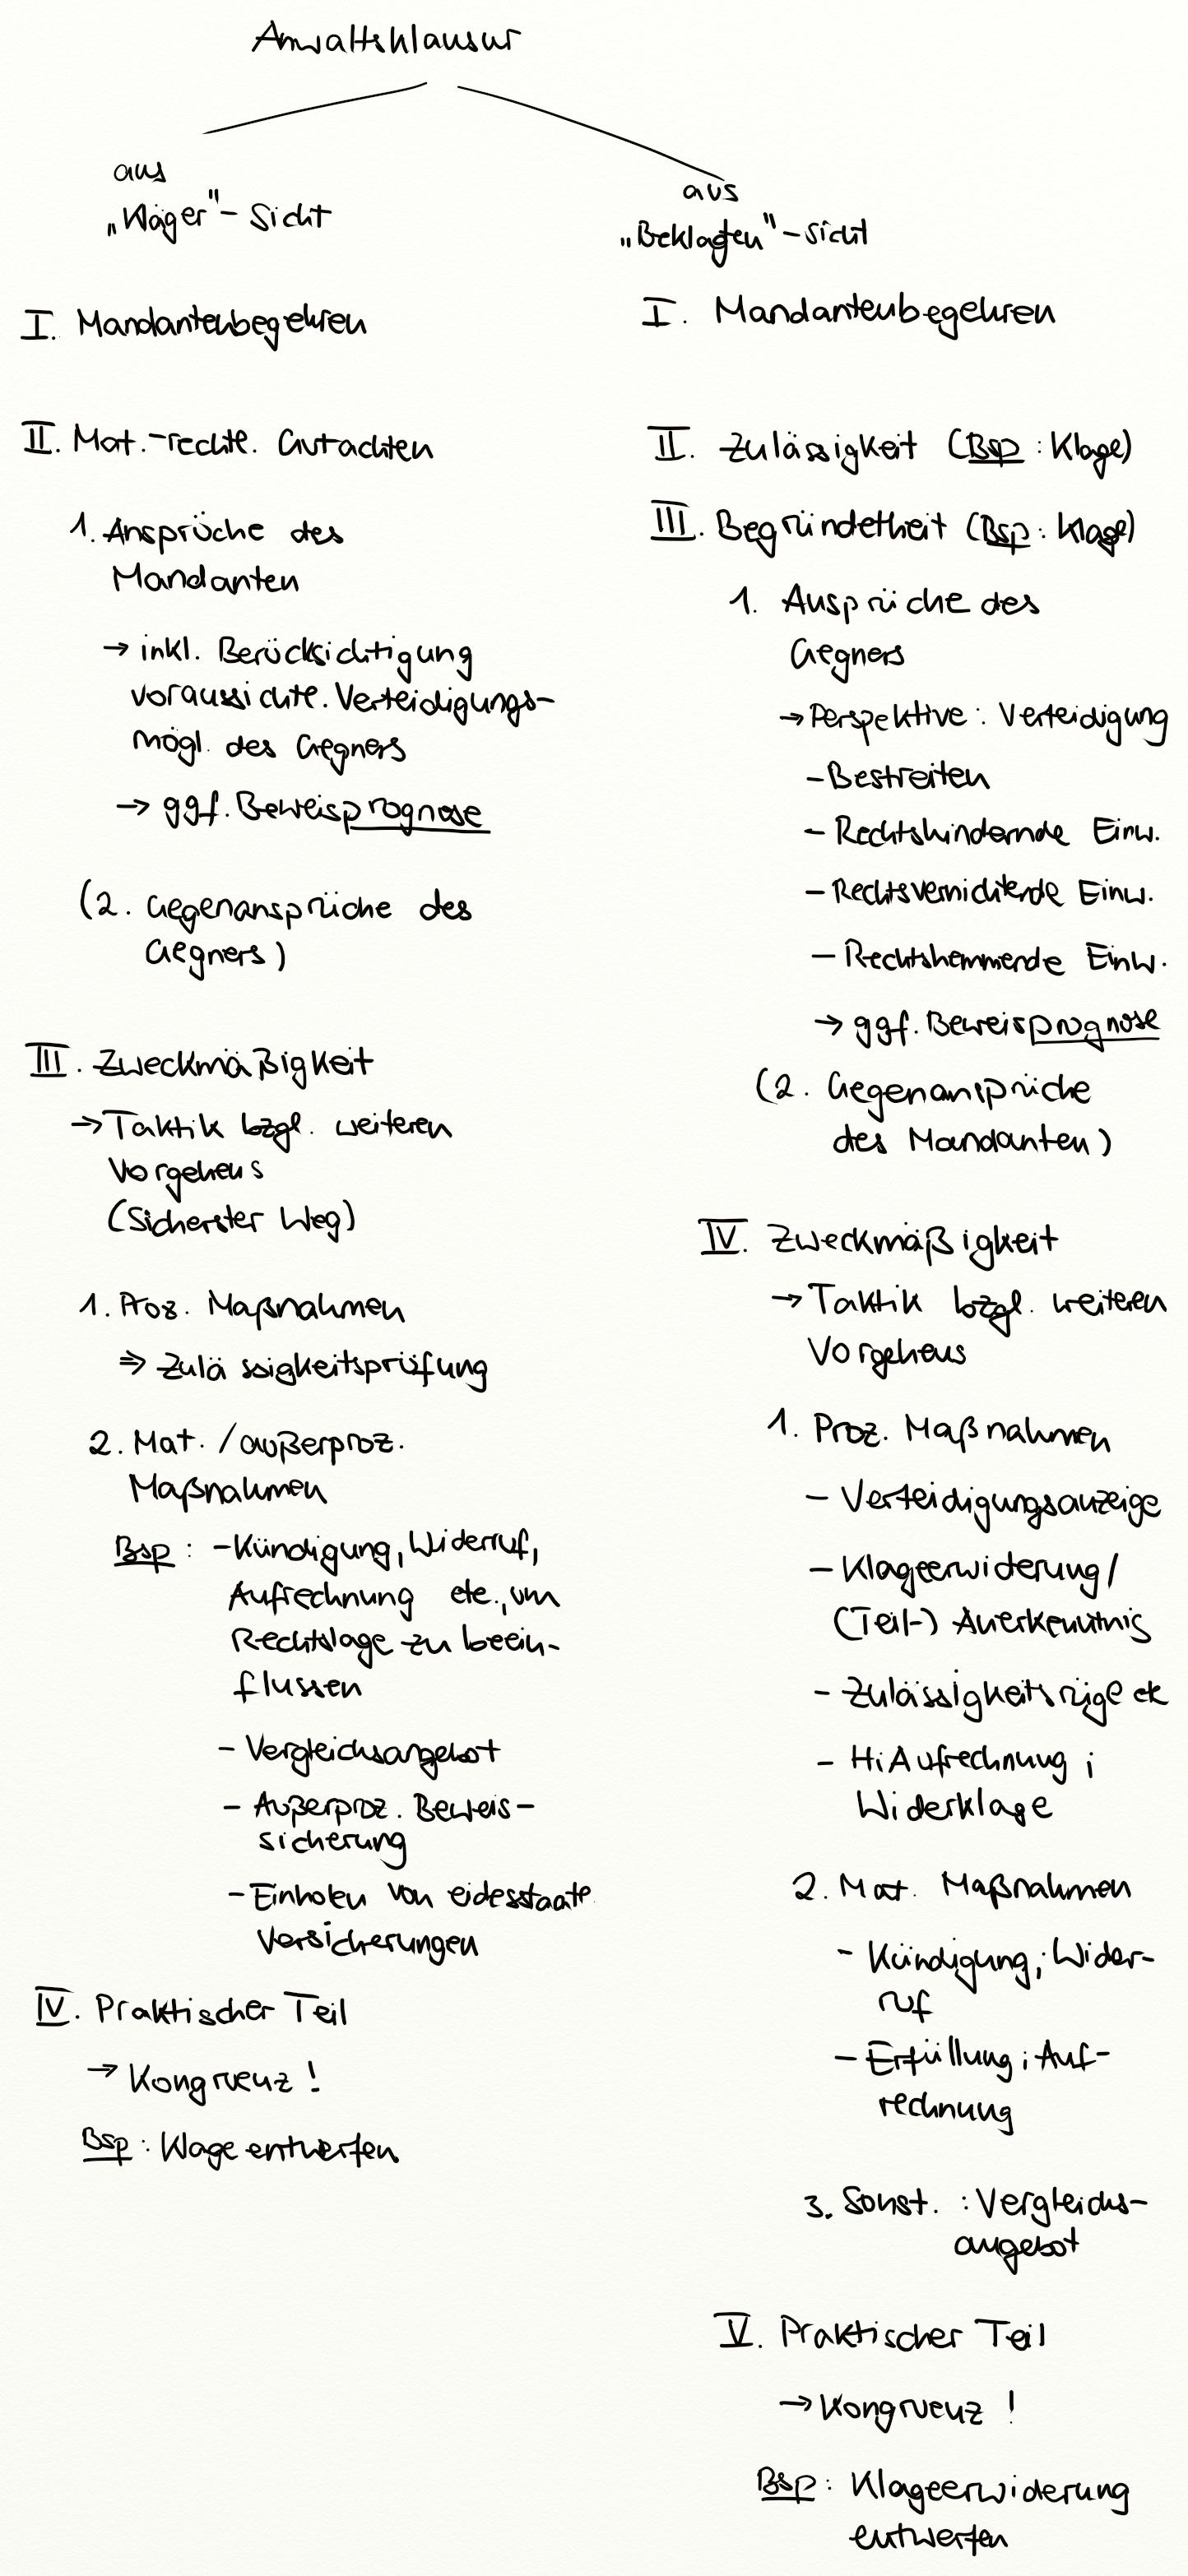 Anwaltsklausur
aus
„Kläger"-Sicht
I. Mandantenbegehren
II. Mat.-rechtl. Gutachten
1. Ansprüche des
Mandanten
→ inkl. Berücksichtigung
voraussichtl. Verteidigungs-
mögl. des Gegners
→ ggf. Beweisprognose
(2. Gegenansprüche des
Gegners)
III. Zweckmäßigkeit
→ Taktik bzgl. weiteren
Vorgehens
(Sicherster Weg)
1. Proz. Maßnahmen
⇒ Zulässigkeitsprüfung
2. Mat. / außerproz.
Maßnahmen
Bsp: - Kündigung, Widerruf,
Aufrechnung etc., um
Rechtslage zu beein-
flussen
- Vergleichsangebot
- Außerproz. Beweis-
sicherung
- Einholen von eidesstaatl.
Versicherungen
IV. Praktischer Teil
→ Kongruenz!
Bsp: Klage entwerfen
aus
„Beklagten"-Sicht
I. Mandantenbegehren
II. Zulässigkeit (Bsp: Klage)
III. Begründetheit (Bsp: Klage)
1. Ansprüche des
Gegners
→ Perspektive: Verteidigung
- Bestreiten
- Rechtshindernde Einw.
- Rechtsvernichtende Einw.
- Rechtshemmende Einw.
→ ggf. Beweisprognose
(2. Gegenansprüche
des Mandanten)
IV. Zweckmäßigkeit
→ Taktik bzgl. weiteren
Vorgehens
1. Proz. Maßnahmen
- Verteidigungsanzeige
- Klageerwiderung/
(Teil-) Anerkenntnis
- Zulässigkeitsrüge etc
- HiAufrechnung;
Widerklage
2. Mat. Maßnahmen
- Kündigung; Wider-
ruf
- Erfüllung; Auf-
rechnung
3. Sonst.: Vergleichs-
angebot
V. Praktischer Teil
→ Kongruenz!
Bsp: Klageerwiderung
entwerfen